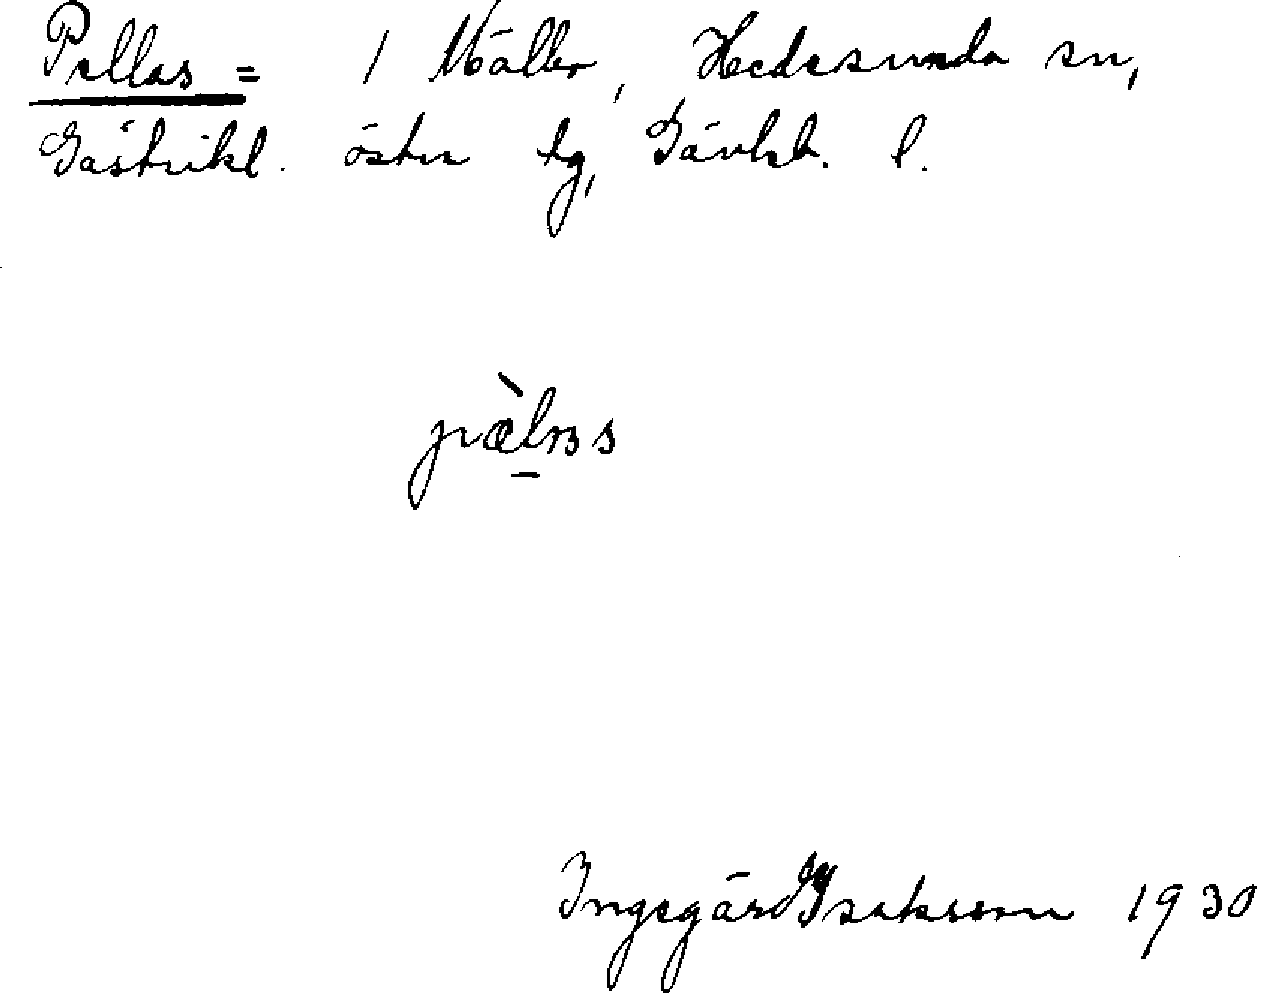 Pellas = 1 Mäller, Hedesunda sn,
Gästrikl. östra tg, Gävleb. l.
pæ̀l̠ɒs
Ingegärd Isaksson 1930